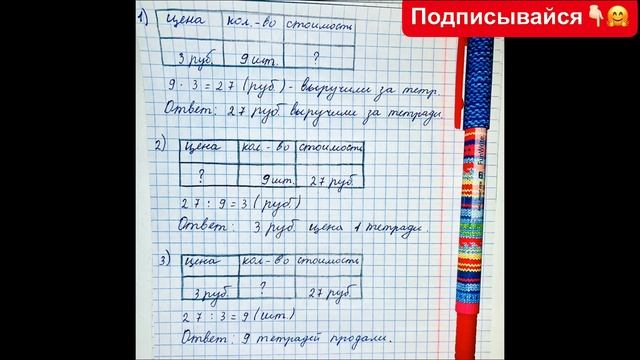 Подписывайся
1) цена кол-во стоимость
3 руб. 9 шт. ?
9 · 3 = 27 (руб.) - выручили за тетр.
Ответ: 27 руб. выручили за тетради.
2) цена кол-во стоимость
? 9 шт. 27 руб.
27 : 9 = 3 (руб)
Ответ: 3 руб. цена 1 тетради.
3) цена кол-во стоимость
3 руб. ? 27 руб.
27 : 3 = 9 (шт.)
Ответ: 9 тетрадей продали.